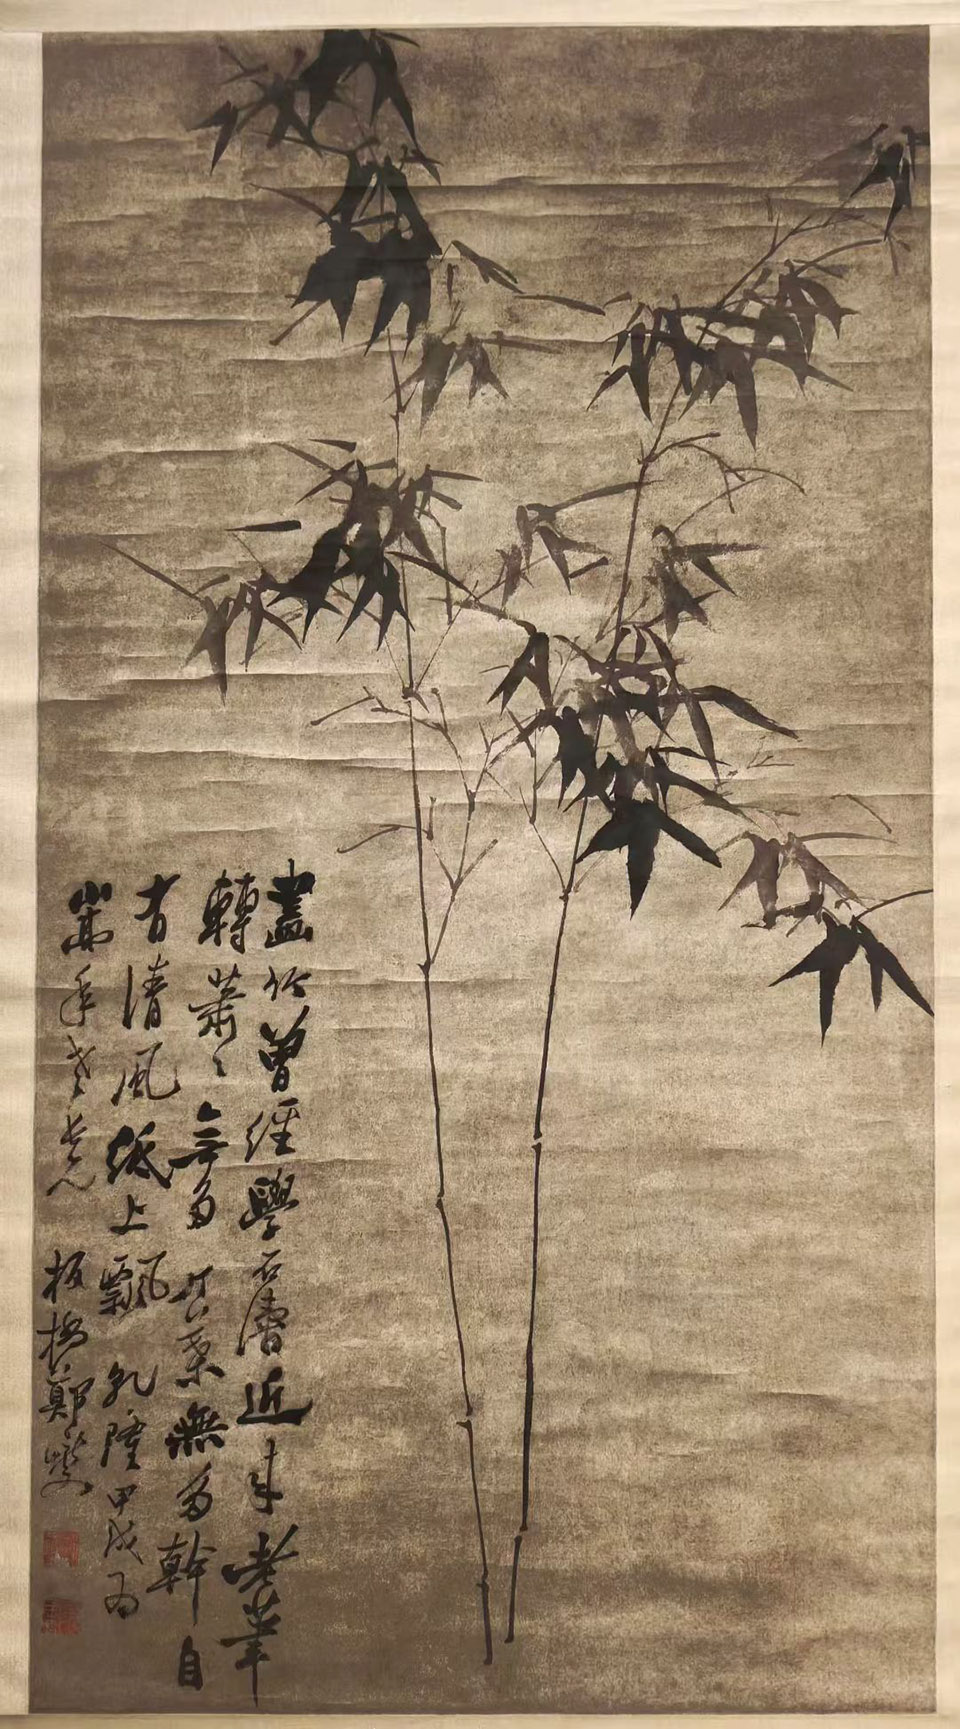 畫竹曾經學石濤近來老筆
轉蕭〻無多竹葉無多幹自
有清風紙上飄乾隆甲戌為
嵩年老長兄板橋鄭燮